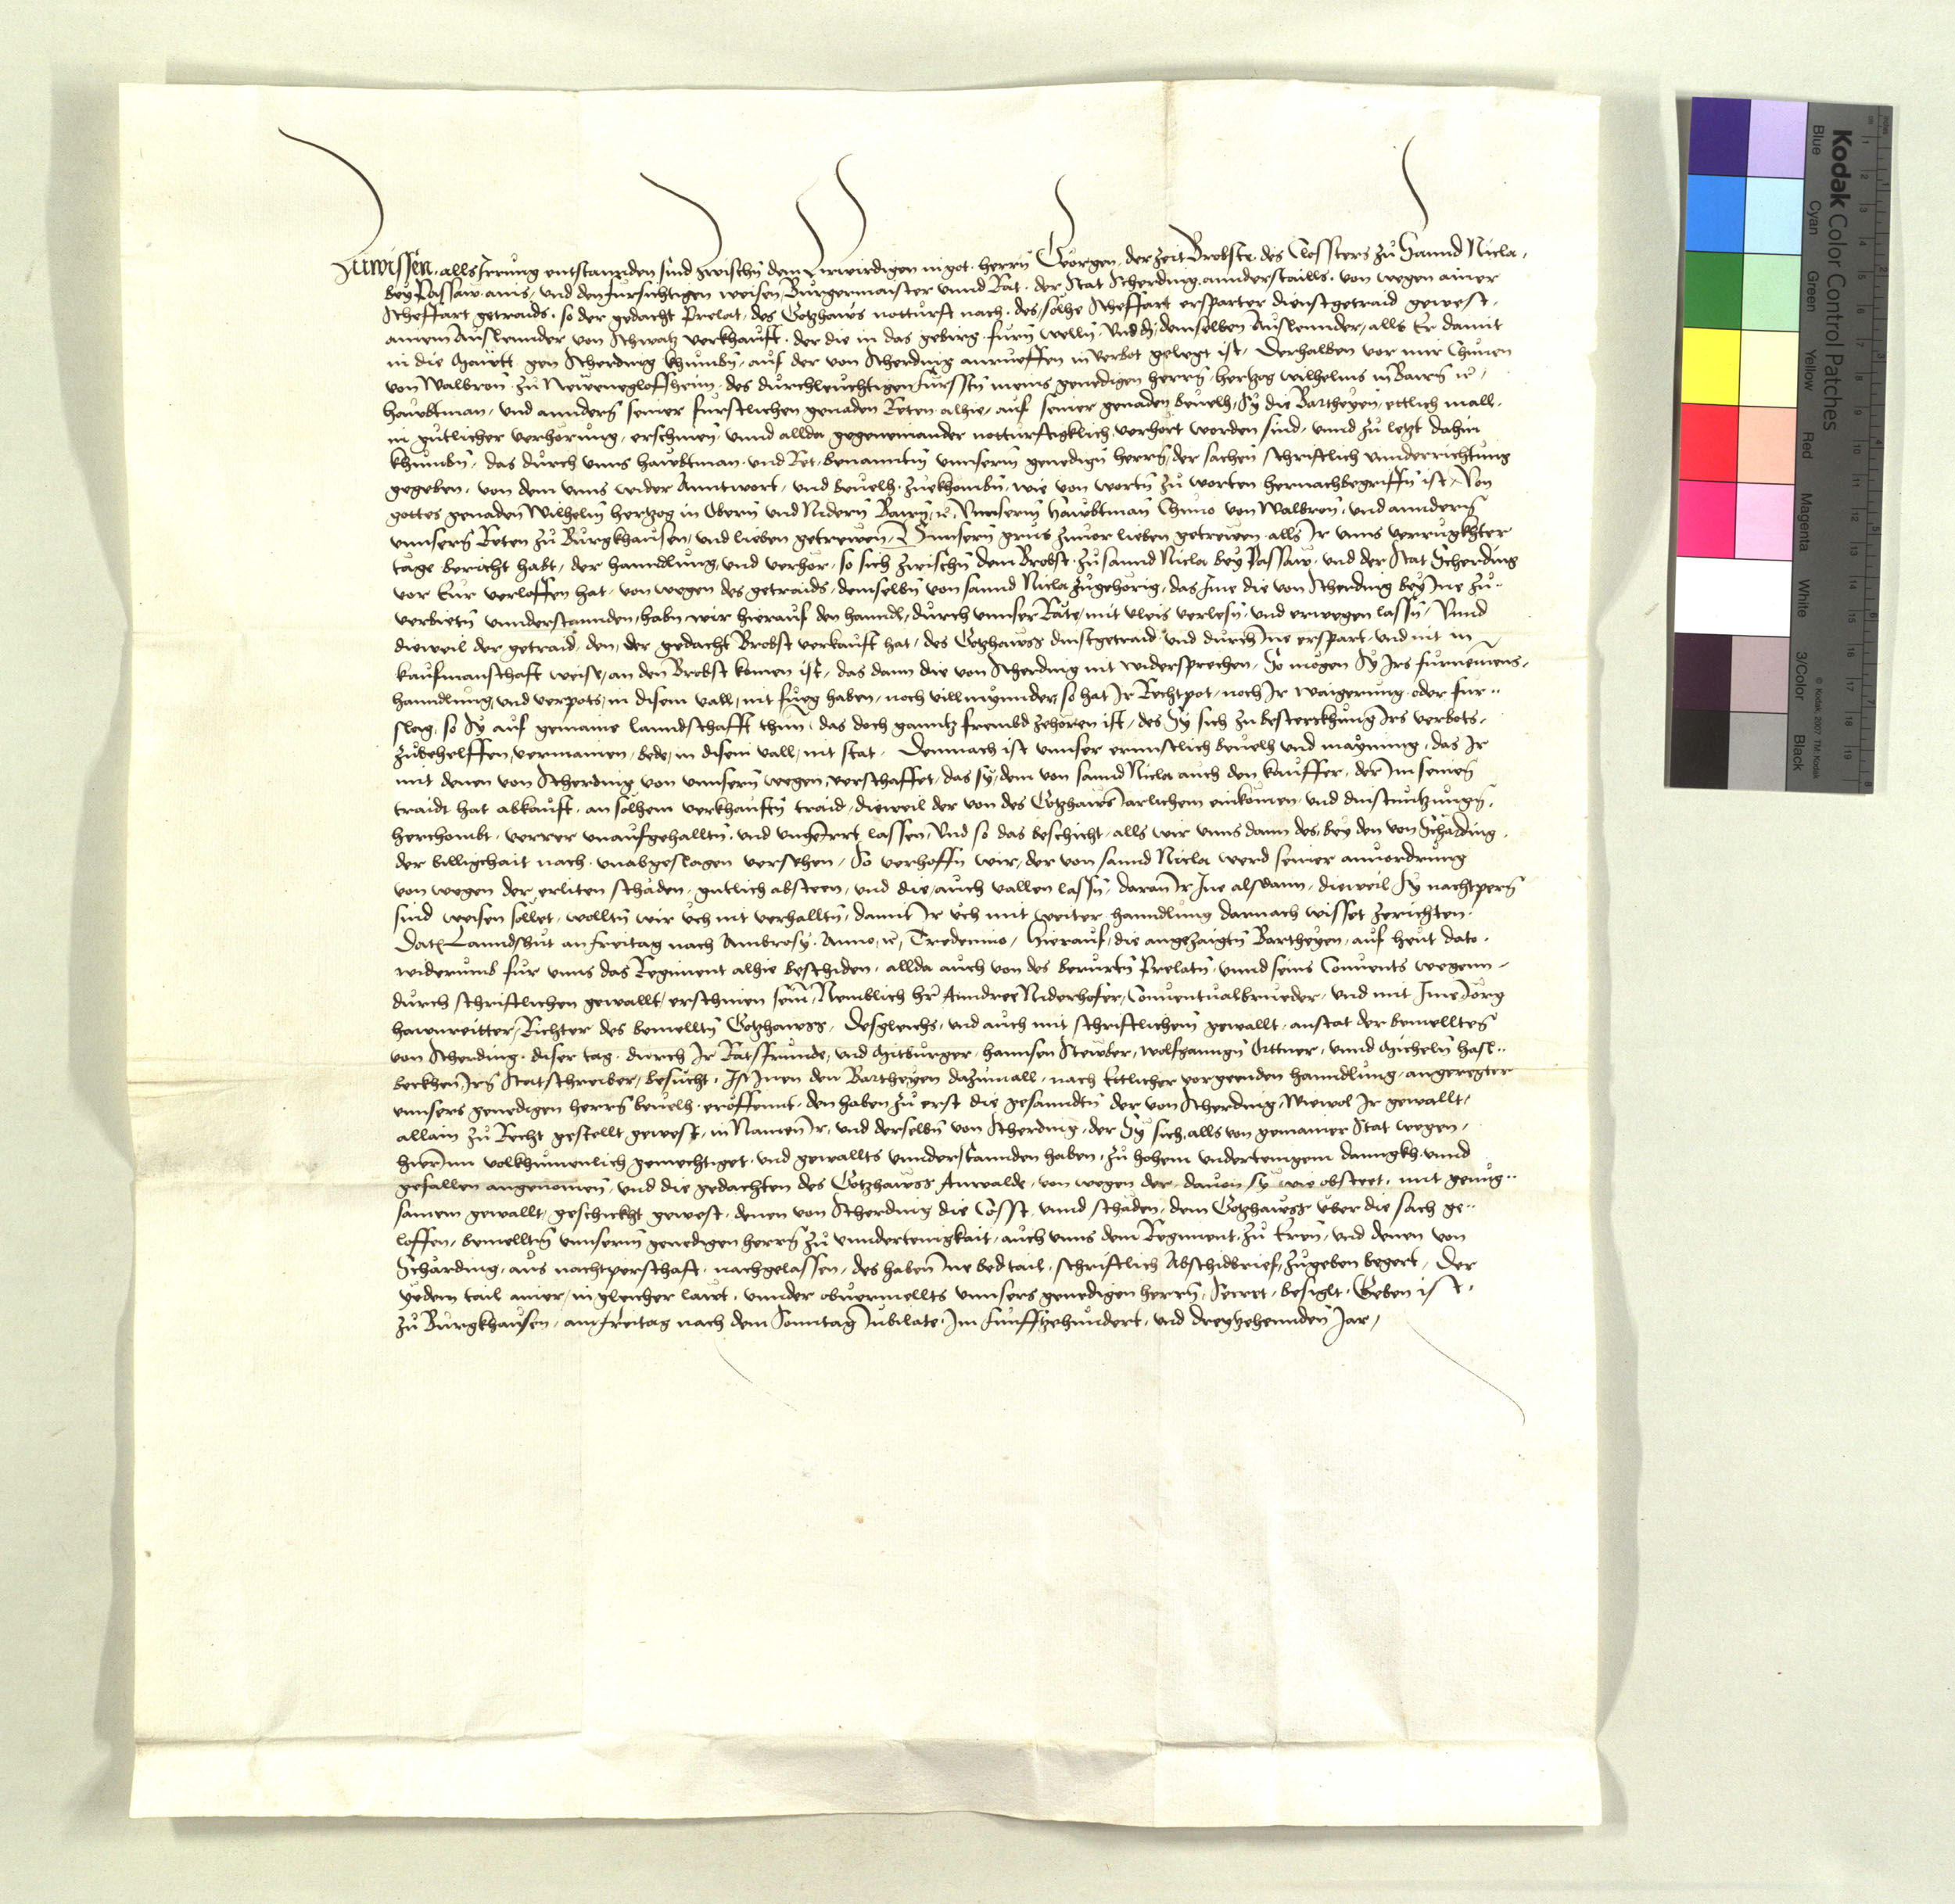 Zuwissen, alls Irrung entstannden sind zwischn dem Erwirdigen in got, herrn Georgen, der zeit Brobste des Clossters zu Sannd Nicla,
bey Passaw ains, und den fursichtigen weisen Burgermaister unnd Rat, der Stat Scherding, annderstaills, von wegen ainer
Scheffart getraids, so der gedacht Prelat, des Gotzhaws notturft nach, des, solhe Scheffart ersparter dienstgetraid gewest,
ainem Auslennder von Schwatz verkhauft, der die in das gebirg furn welln, Und dz, demselben Auslennder, alls Er damit
in die Mautt gen Scherding khumbn, auf der von Scherding anrueffen in verbot gelegt ist, Derhalben vor mir Chunen
von Walbron zu Neweneglofsheim, des durchleuchtigen Furssten meins genedigen herrn, hertzog Wilhelms in Bairn etc,
haubtman, und anndern seiner furstlichen genaden Reten alhie, auf seiner genaden bevelh, Sy die Bartheyen, ettlich mall,
in gutlicher verhorung, erschinen, unnd allda gegeneinander notturftigklich verhort worden sind, unnd zu letzt dahin
khumbn, das durch unns haubtman und Ret, benanntm unnserm genedign herrn, der sachen schriftlich unnderrichtung
gegeben, von dem unns wider Anntwort, und bevelh zuekhombn, wie von wortn zu worten hernachbegriffn ist, Von
gottes genaden Wilhelm hertzog in Obern und Nidern Bairn, etc, Unnserm haubtman Chuno von Walbron, und anndern
unnsern Reten zu Burgkhausen, und lieben getrewen, Unnsern grus zuvor lieben getrewen, alls Ir unns verrugkhter
tage bericht habt, der hanndlung, und verhor, so sich zwischn dem Brobst zu sannd Nicla bey Passaw, und der Stat Scherding
vor Eur verloffen hat, von wegen des getraids, demselbn von sannd Nicla zugehorig, das Ime die von Scherding bey Ine zu
verbietn unnderstannden, habn wir hierauf den hanndl, durch unnser Räte, mit vleis verlesn, und erwegen lassn, Unnd
dieweil der getraid, den, der gedacht Brobst verkauft hat, des Gotzhawss dinstgetraid und durch Ine erspart, und nit in
kaufmanschaft weise, an den Brobst komen ist, das dann die von Scherding nit widersprechen, So mogen Sy Irs furnemens,
hanndlung, und verpots, in disem vall, nit fueg haben, noch vill mynnder, so hat Ir Rechtpot, noch Ir waigerung, oder fur
slag, so Sy auf gemaine lanndschafft thun, das doch ganntz frembd zehoren ist, des Sy sich zu besterckhung Irs verbots,
zubehelffen, vermainen, bede, in disem vall, nit stat, Demnach ist unnser ernnstlich bevelh und maynung, das Ir
mit denen von Scherding von unnsern wegen, verschaffet, das sy, dem von sannd Nicla auch den kauffer, der Im seinen
traidt hat abkauft, an solhem verkhauftn traid, dieweil der von des Gotzhaws Iarlichem einkomen, und dinstnutzungn,
herchombt, verrer unaufgehalltn, und ungeirrt lassen, Und so das beschicht, alls wir unns dann des, bey den von Schärding,
der billigchait nach, unabgeslagen versehen, So verhoffn wir, der von sannd Nicla werd seiner anvordrung
von wegen der erliten schäden, gutlich absteen, und die, auch vallen lassn, daran Ir Ine alsdann, dieweil Sy nachtpern
sind weisen sollet, wolltn wir Uch nit verhalltn, damit Ir Uch mit weiter hanndlung darnach wisset zerichten.
Dat. Lanndshut an freitag nach Ambrosy, Anno, etc, Tredecimo, Hierauf, die angezaigtn Bartheyen, auf heut dato,
widerumb fur unns das Regiment alhie beschiden, allda auch von des berurtn Prelatn, unnd seins Convents wegenn,
durch schriftlichen gewallt, erschinen sein, Nemblich hr Anndree Niderhofer, Conventualbrueder, und mit Ime Jorg
hawnreitter, Richter des bemelltn Gotzhawss, Desgleichs, und auch mit schriftlichem gewallt, anstat der bemellten
von Scherding, diser tag, durch Ir Ratsfrunde, und Mitburger, hannsen Stewber, Wolfganngn Attner, unnd Micheln hasl
beckhen Irn Statschreiber, besucht, Ist Inen den Bartheyen dazumall, nach Ettlicher vorgeenden hanndlung, angeregter
unnsers genedigen herrn bevelh, eroffennt, den haben zu erst die gesanndtn der von Scherding, Wiewol Ir gewallt,
allain zu Recht gestellt gewest, in Namen Ir, und derselbn von Scherding, der Sy sich, alls von gemainer Stat wegen,
hierinn volkhumenlich gemechtiget, und gewallts unnderstannden haben, zu hohem undertenigem danngkh, unnd
gefallen angenomen, und die gedachten des Gotzhawss Anwalde, von wegen der, davon sy wie obsteet, mit genug
samem gewallt, geschickht gewest, denen von Scherding die Cosst, unnd schäden, dem Gotzhawss uber die sach ge
loffen, bemelltm unnserm genedigen herrn zu unndertenigkait, auch unns dem Regiment, zu Ern, und denen von
Schärding, aus nachtperschaft, nachgelassen, des haben Ine bed tail, schriftlich Abschidbrief, zugeben begert, Der
yedem tail ainer, in gleicher lawt, unnder obvermellts unnsers genedigen herrn, Secret, besiglt, Geben ist,
zu Burgkhausen, am freitag nach dem Sonntag Jubilate, Im Funfftzehundert, und dreytzehennden Jar,
Kodak Color Control Patches
Blue Cyan Green Yellow Red Magenta White 3/Color Black
© Kodak, 2007 TM: Kodak